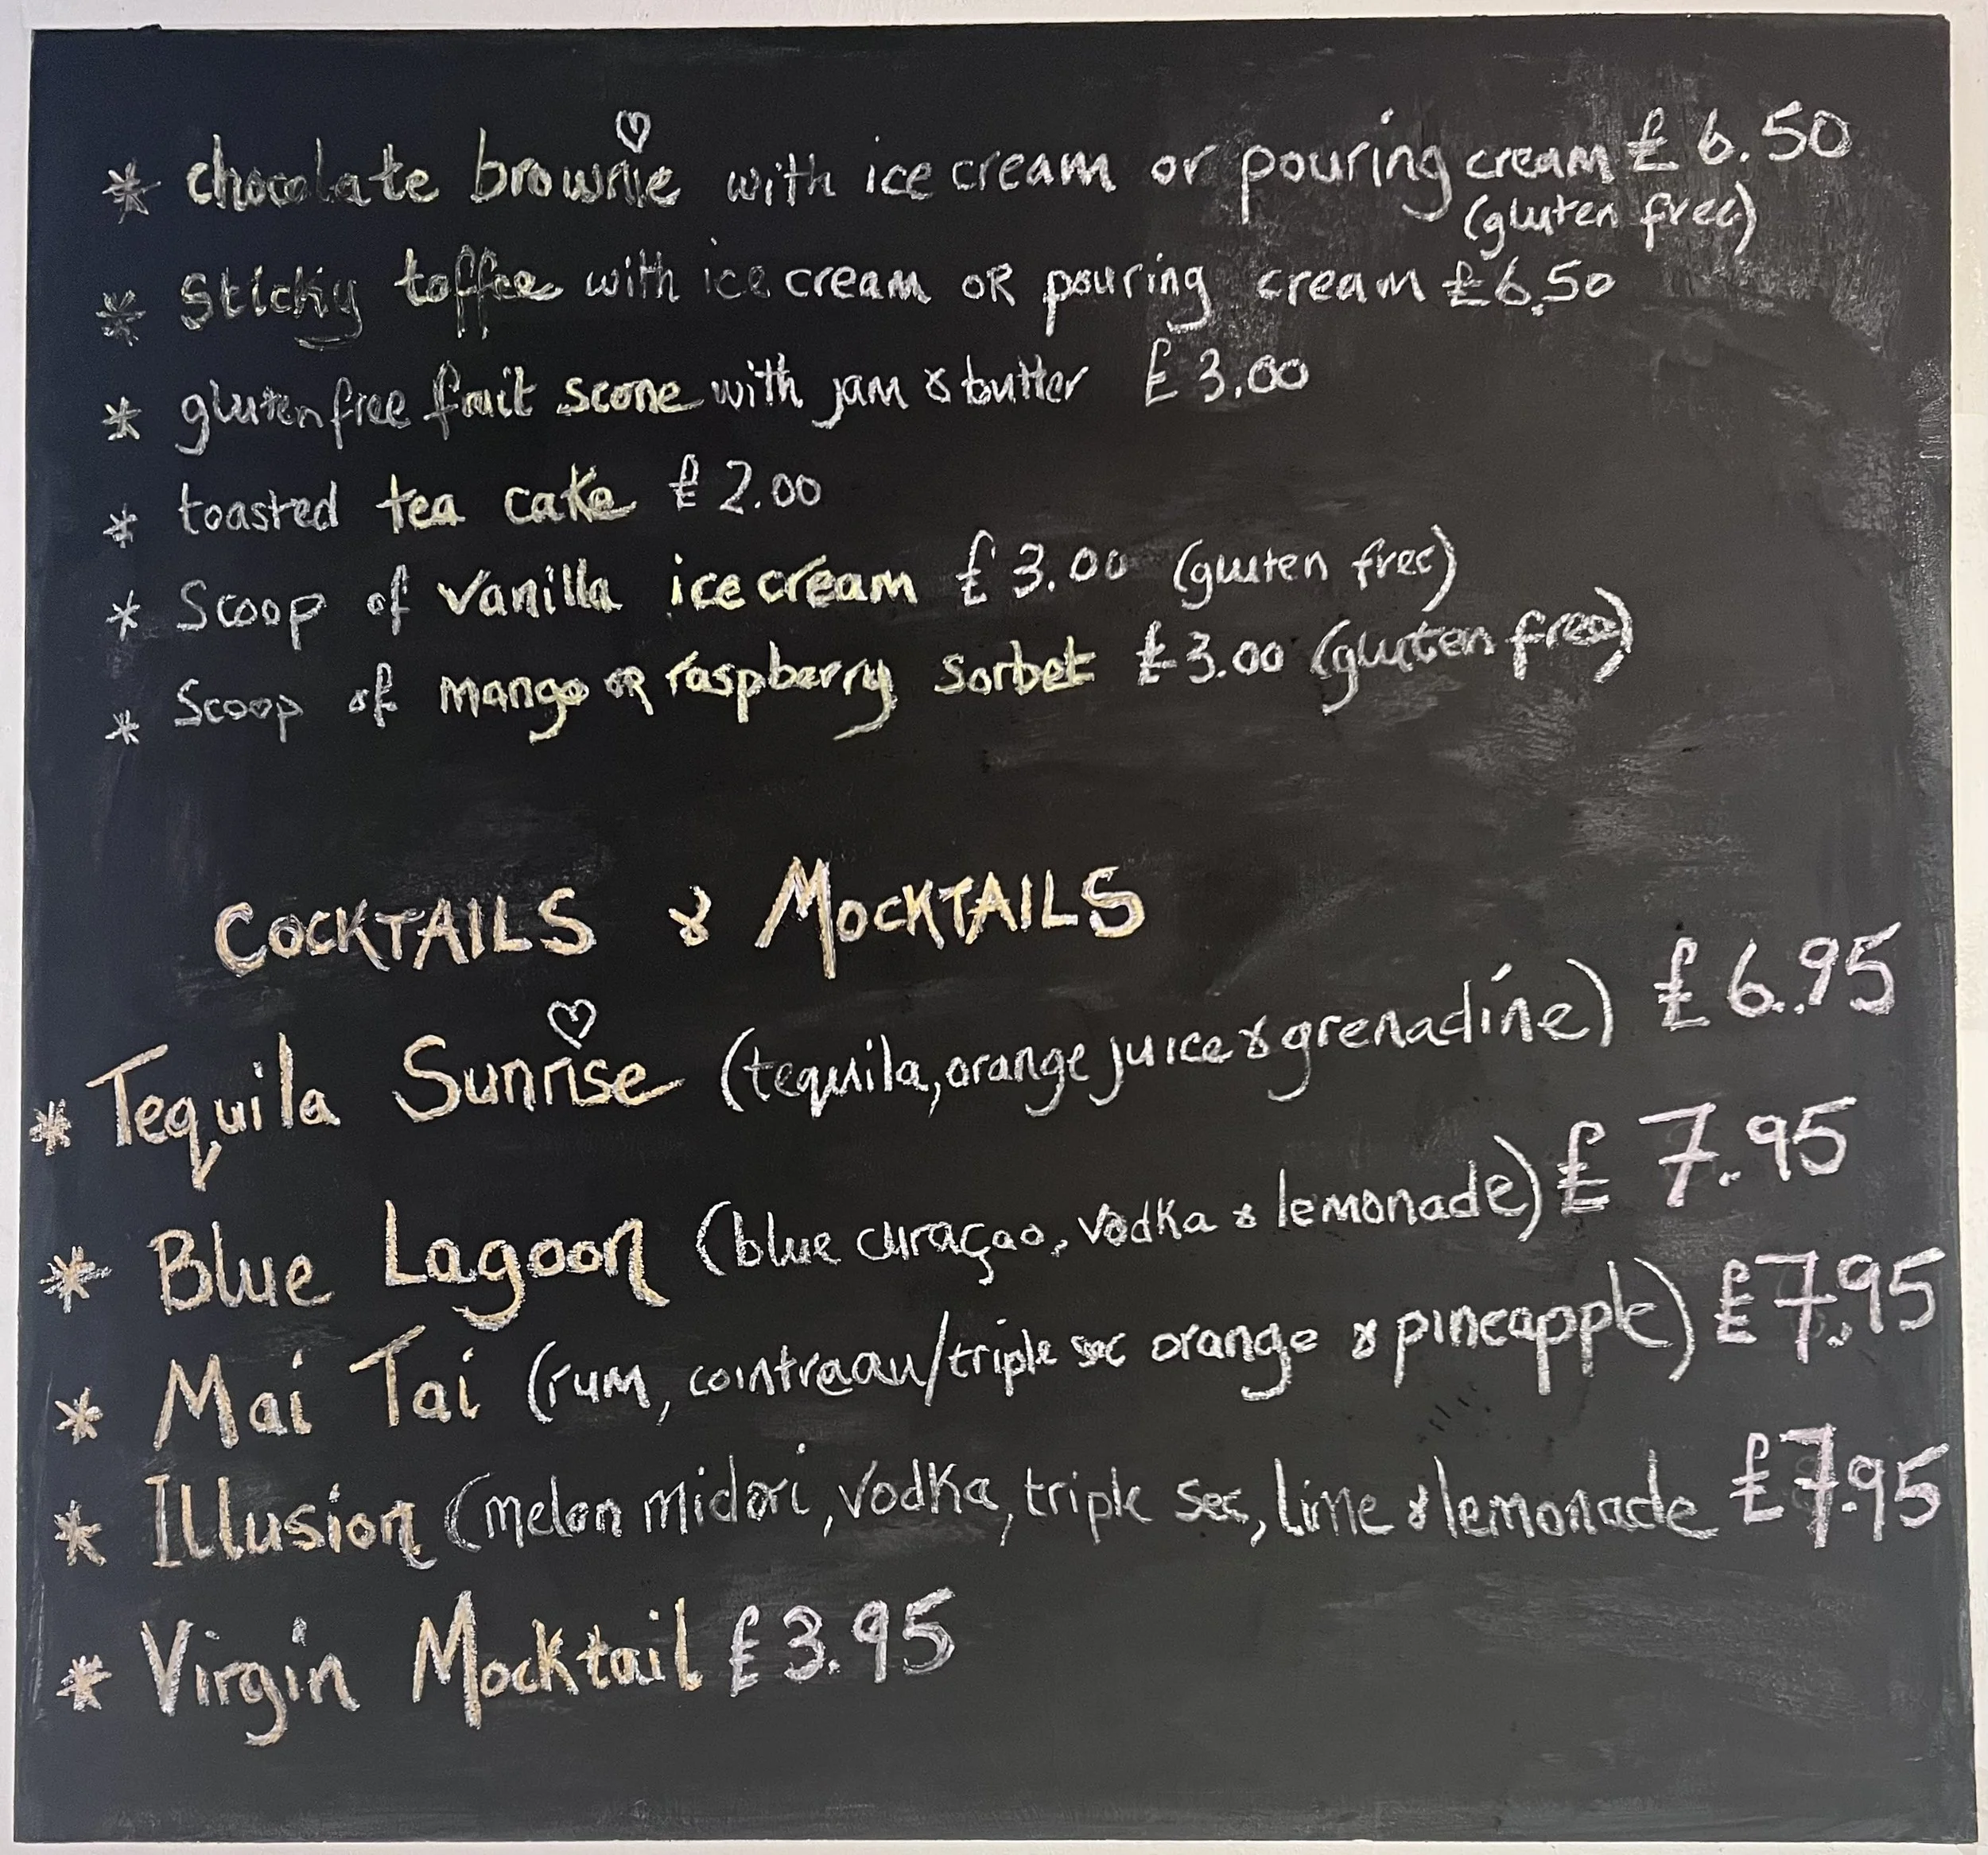 * chocolate brownie with ice cream or pouring cream £6.50
(gluten free)
* Sticky toffee with ice cream OR pouring cream £6.50
* gluten free fruit scone with jam & butter £3.00
* toasted tea cake £2.00
* Scoop of vanilla ice cream £3.00 (gluten free)
* Scoop of mango OR raspberry sorbet £3.00 (gluten free)
COCKTAILS & MOCKTAILS
* Tequila Sunrise (tequila, orange juice & grenadine) £6.95
* Blue Lagoon (blue curaçao, vodka & lemonade) £7.95
* Mai Tai (rum, cointreau/triple sec orange & pineapple) £7.95
* Illusion (melon midori, vodka, triple sec, lime & lemonade £7.95
* Virgin Mocktail £3.95